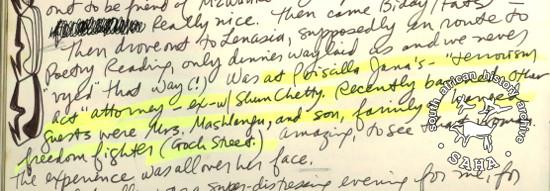 out to be friend of
Really nice. Then came Biday/Fats —
Then drove out to Lenasia, supposedly en route to
Poetry Reading, only dinner waylaid us and we never
"roped" that way (!) Was at Priscilla Jana's - "terrorism
act" attorney - ex-w/ Shun Chetty. Recently banned. Other
guests were Mrs. Mashlengu, and son, family of
freedom fighter (Goch Street.) amazing, to see that
The experience was all over her face.
distressing evening for me, for
south african history archive
SAHA